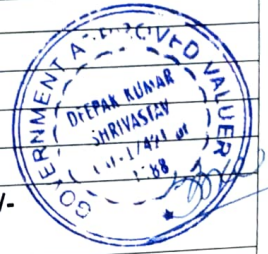 GOVERNMENT APPROVED VALUER
DEEPAK KUMAR
SHRIVASTAV
/-